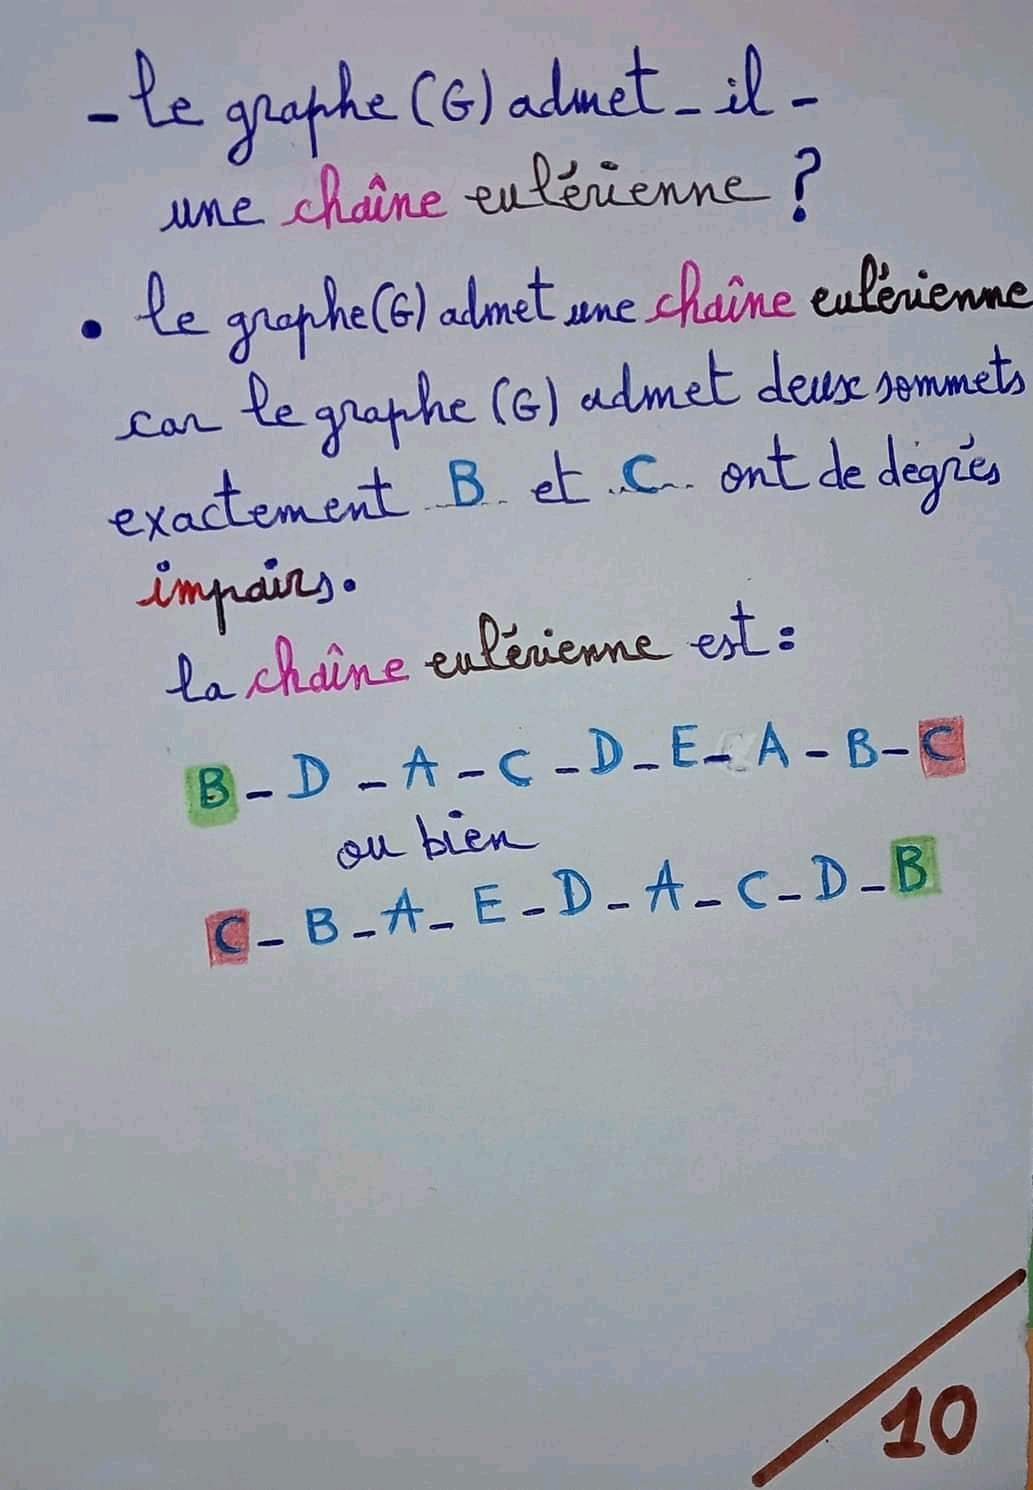 - le graphe (G) admet - il -
une chaîne eulérienne ?
• le graphe (G) admet une chaîne eulérienne
car le graphe (G) admet deux sommets
exactement B et C ont de degrés
impairs.
la chaîne eulérienne est :
B - D - A - C - D - E - A - B - C
ou bien
C - B - A - E - D - A - C - D - B
10